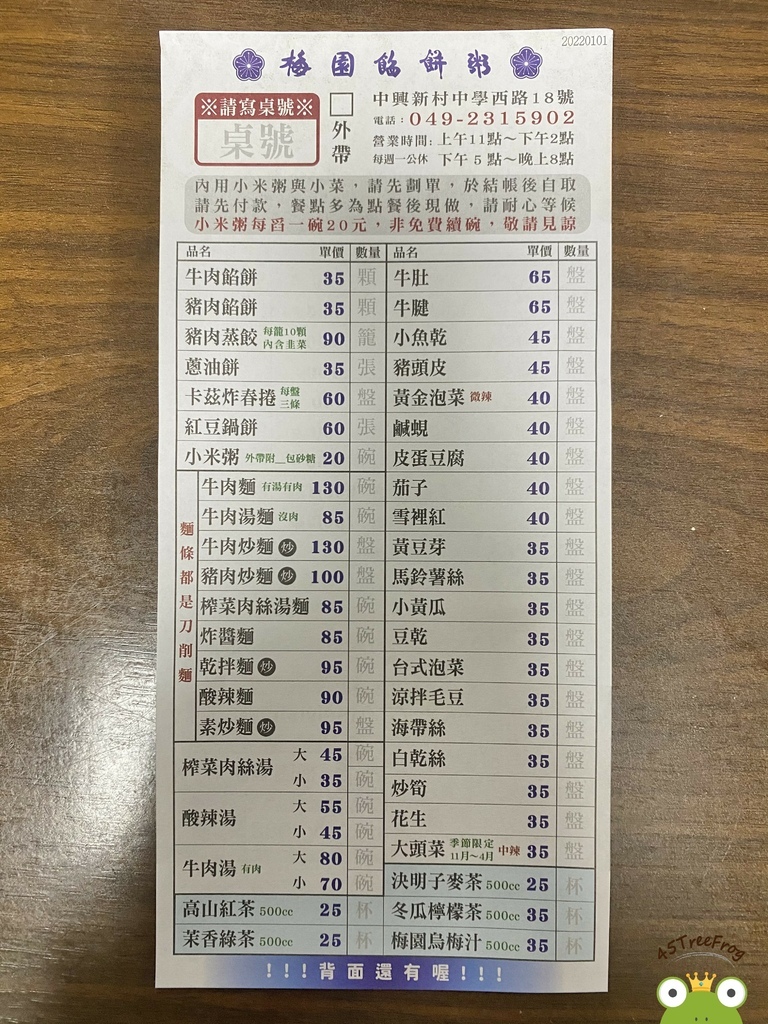 20220101
梅園餡餅粥
※請寫桌號※
桌號
外帶
中興新村中學西路18號
電話：049-2315902
營業時間：上午11點～下午2點
每週一公休 下午5點～晚上8點
內用小米粥與小菜，請先劃單，於結帳後自取
請先付款，餐點多為點餐後現做，請耐心等候
小米粥每舀一碗20元，非免費續碗，敬請見諒
品名 單價 數量
牛肉餡餅 35 顆
豬肉餡餅 35 顆
豬肉蒸餃 每籠10顆 內含韭菜 90 籠
蔥油餅 35 張
卡茲炸春捲 每盤三條 60 盤
紅豆鍋餅 60 張
小米粥 外帶附__包砂糖 20 碗
麵條都是刀削麵
牛肉麵 有湯有肉 130 碗
牛肉湯麵 沒肉 85 碗
牛肉炒麵 炒 130 盤
豬肉炒麵 炒 100 盤
榨菜肉絲湯麵 85 碗
炸醬麵 85 碗
乾拌麵 炒 95 碗
酸辣麵 90 碗
素炒麵 炒 95 盤
榨菜肉絲湯 大 45 碗
小 35 碗
酸辣湯 大 55 碗
小 45 碗
牛肉湯 有肉 大 80 碗
小 70 碗
高山紅茶 500cc 25 杯
茉香綠茶 500cc 25 杯
品名 單價 數量
牛肚 65 盤
牛腱 65 盤
小魚乾 45 盤
豬頭皮 45 盤
黃金泡菜 微辣 40 盤
鹹蜆 40 盤
皮蛋豆腐 40 盤
茄子 40 盤
雪裡紅 40 盤
黃豆芽 35 盤
馬鈴薯絲 35 盤
小黃瓜 35 盤
豆乾 35 盤
台式泡菜 35 盤
涼拌毛豆 35 盤
海帶絲 35 盤
白乾絲 35 盤
炒筍 35 盤
花生 35 盤
大頭菜 季節限定 11月～4月 中辣 35 盤
決明子麥茶 500cc 25 杯
冬瓜檸檬茶 500cc 35 杯
梅園烏梅汁 500cc 35 杯
!!!背面還有喔!!!
45TreeFrog